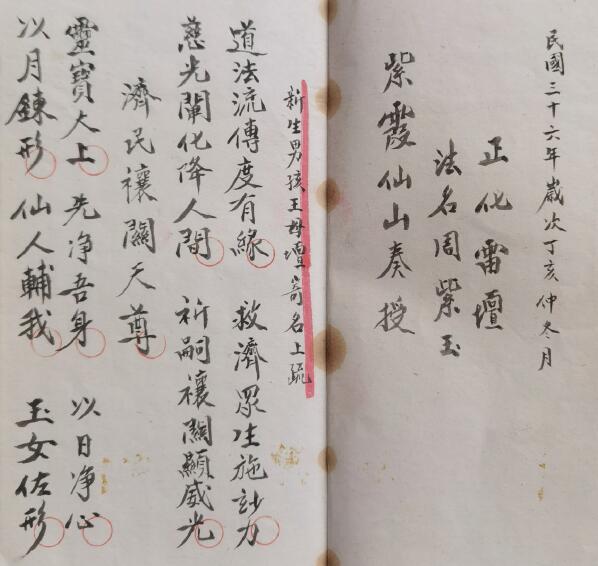 民國三十六年歲次丁亥仲冬月
正化雷壇
法名周紫玉
紫霞仙山奏授
新生男孩王母壇寄名上疏
道法流傳度有緣 救濟眾生施妙力
慈光闡化降人間 祈嗣禳關顯威光
濟民禳關天尊
靈寶大上 先净吾身 以日净心
以月鍊形 仙人輔我 玉女佐形